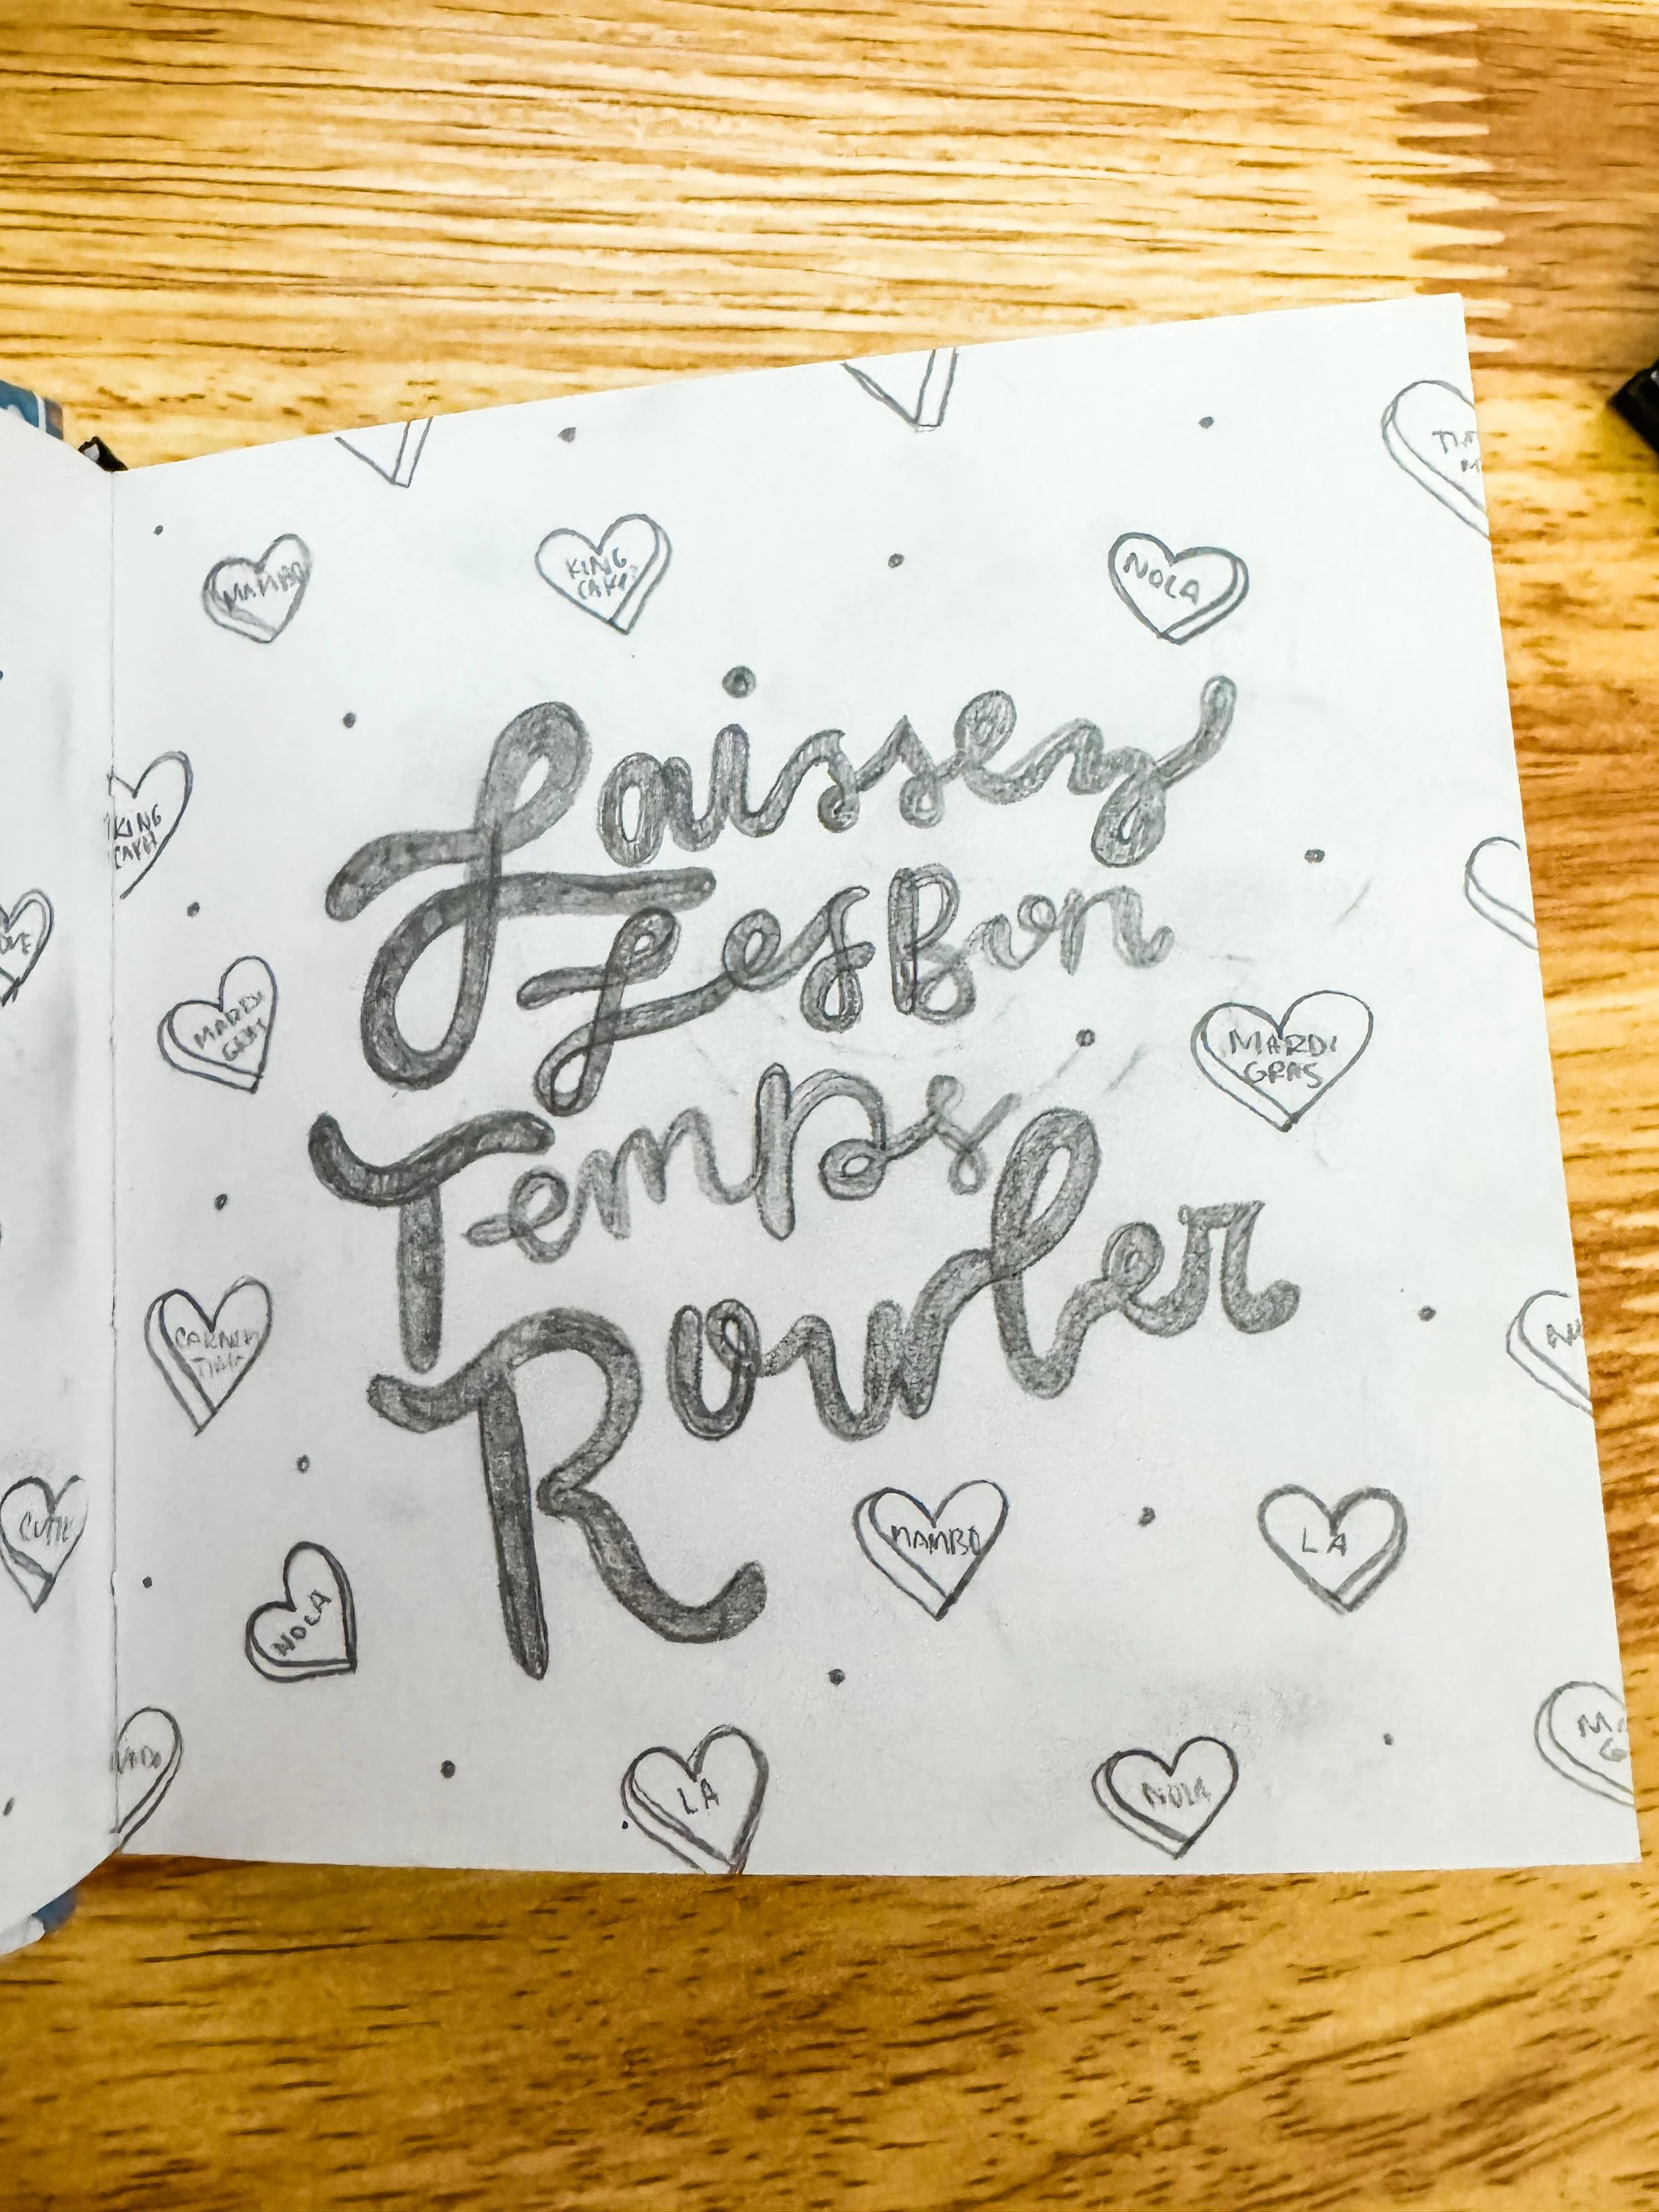 MAMBO
KING
CAKE
NOLA
Laissez
Les Bon
Temps
Rouler
KING
CAKE
MARDI
GRAS
MARDI
GRAS
CUTIE
NOLA
MAMBO
LA
LA
NOLA